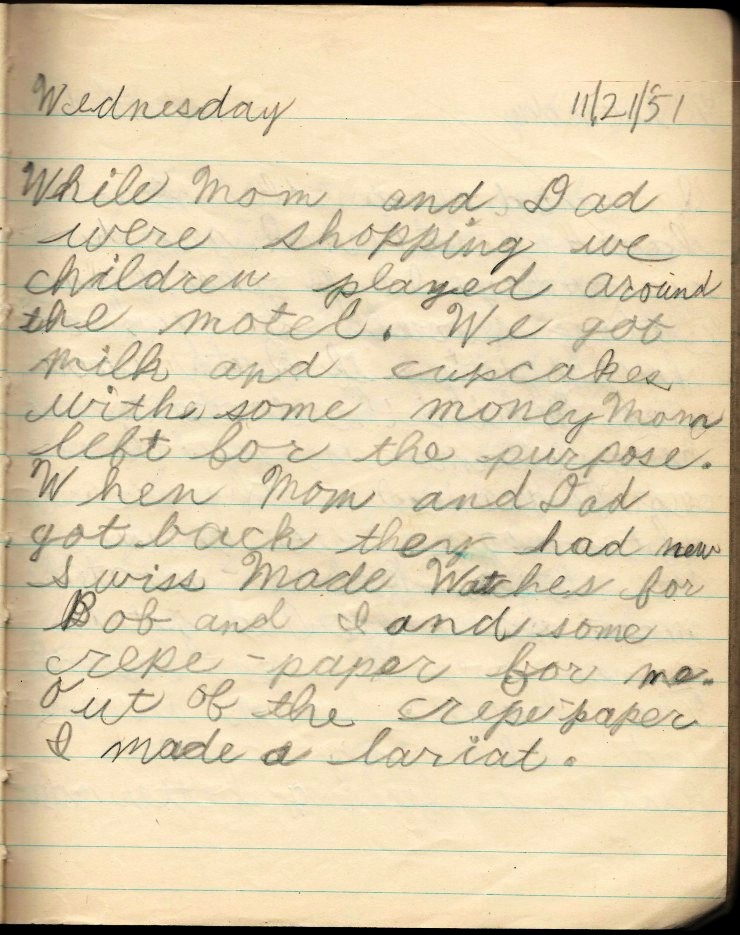 Wednesday 11/21/51
While Mom and Dad
were shopping we
children played around
the motel. We got
milk and cupcakes
withe some money Mom
left for the purpose.
When Mom and Dad
got back they had new
Swiss Made Watches for
Bob and I and some
crepe-paper for me.
Out of the crepe-paper
I made a lariat.